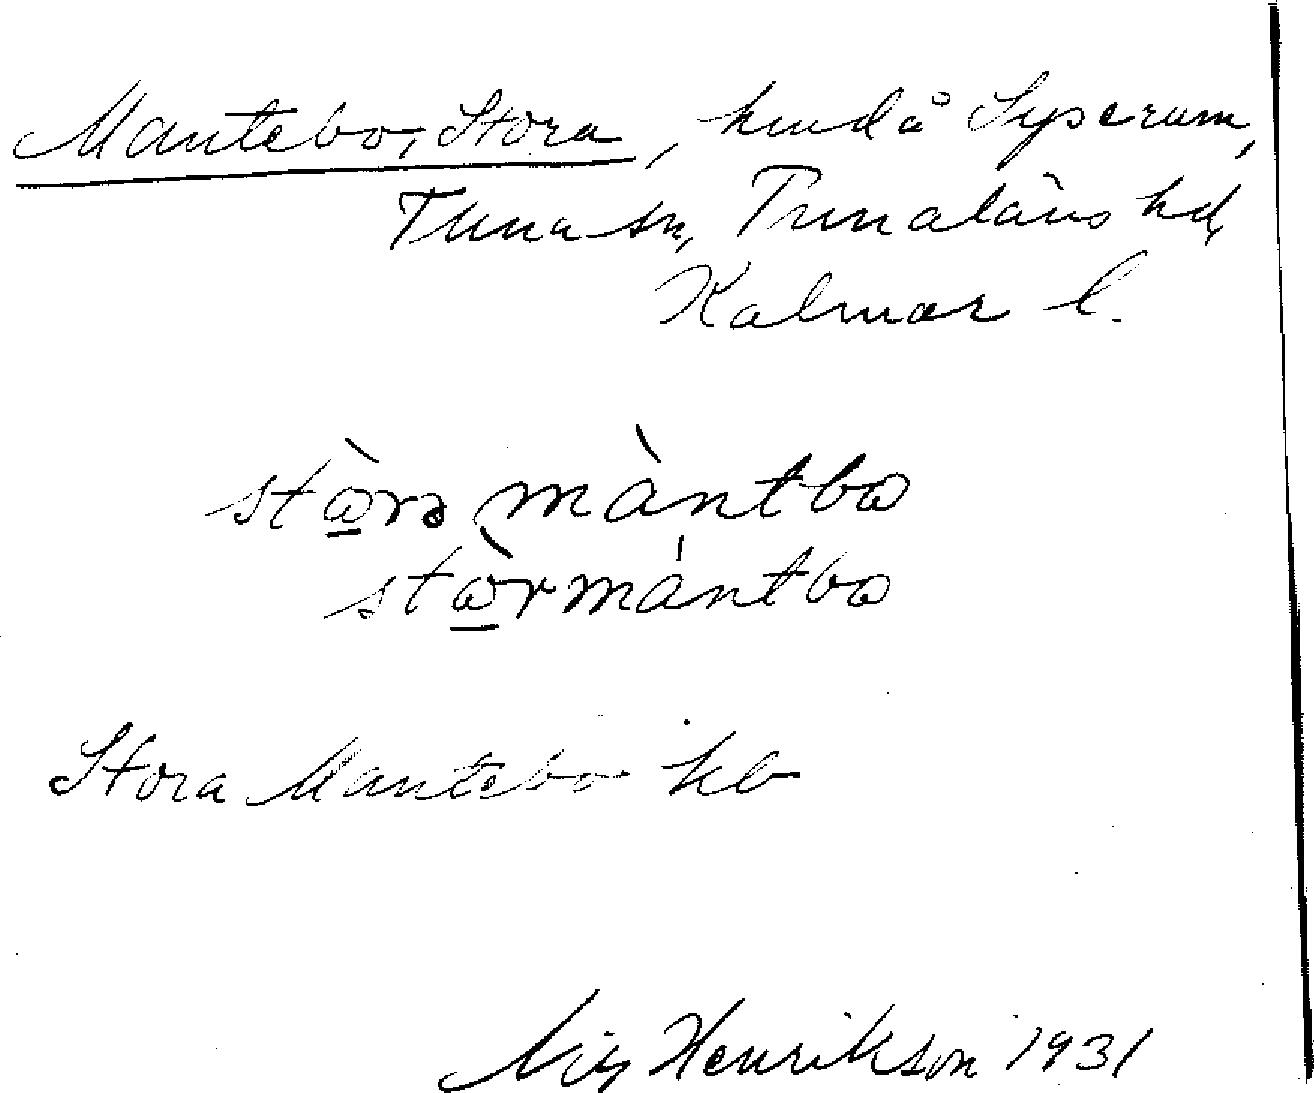 Mantebo, Stora, hmd å Syserum,
Tuna sn, Tunaläns hd,
Kalmar l.
stὼ̱rə màntbω
stὼ̱rmántbω
Stora Mantebo kb
Nils Henrikson 1931